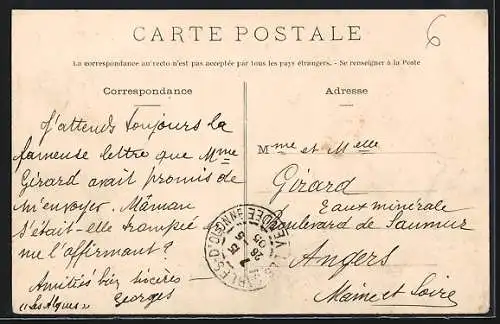 6
CARTE POSTALE
La correspondance au recto n'est pas acceptée par tous les pays étrangers. - Se renseigner à la Poste
Correspondance
J'attends toujours la
fameuse lettre que Mme
Girard avait promis de
m'envoyer. Maman
s'était-elle trompée en
me l'affirmant?
Amitiés bien sincères
"Les Algues" Georges
Adresse
Mme et Melle
Girard
Eaux minérale
Boulevard de Saumur
Angers
Maine et Loire
LES SABLES-D'OLONNE
VENDEE
28
05